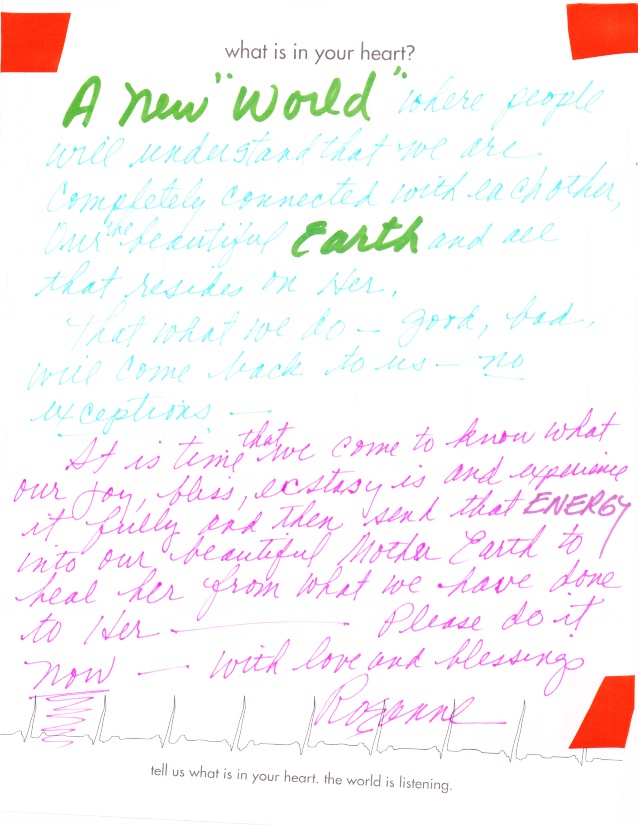 what is in your heart?
A new "World" where people
will understand that we are
completely connected with each other,
Our the beautiful Earth and all
that resides on Her.
That what we do – good, bad,
will come back to us – no
exceptions –
It is time that we come to know what
our joy, bliss, ecstasy is and experience
it fully and then send that ENERGY
into our beautiful Mother Earth to
heal her from what we have done
to Her — Please do it
now — With love and blessings
Rozanne
tell us what is in your heart. the world is listening.